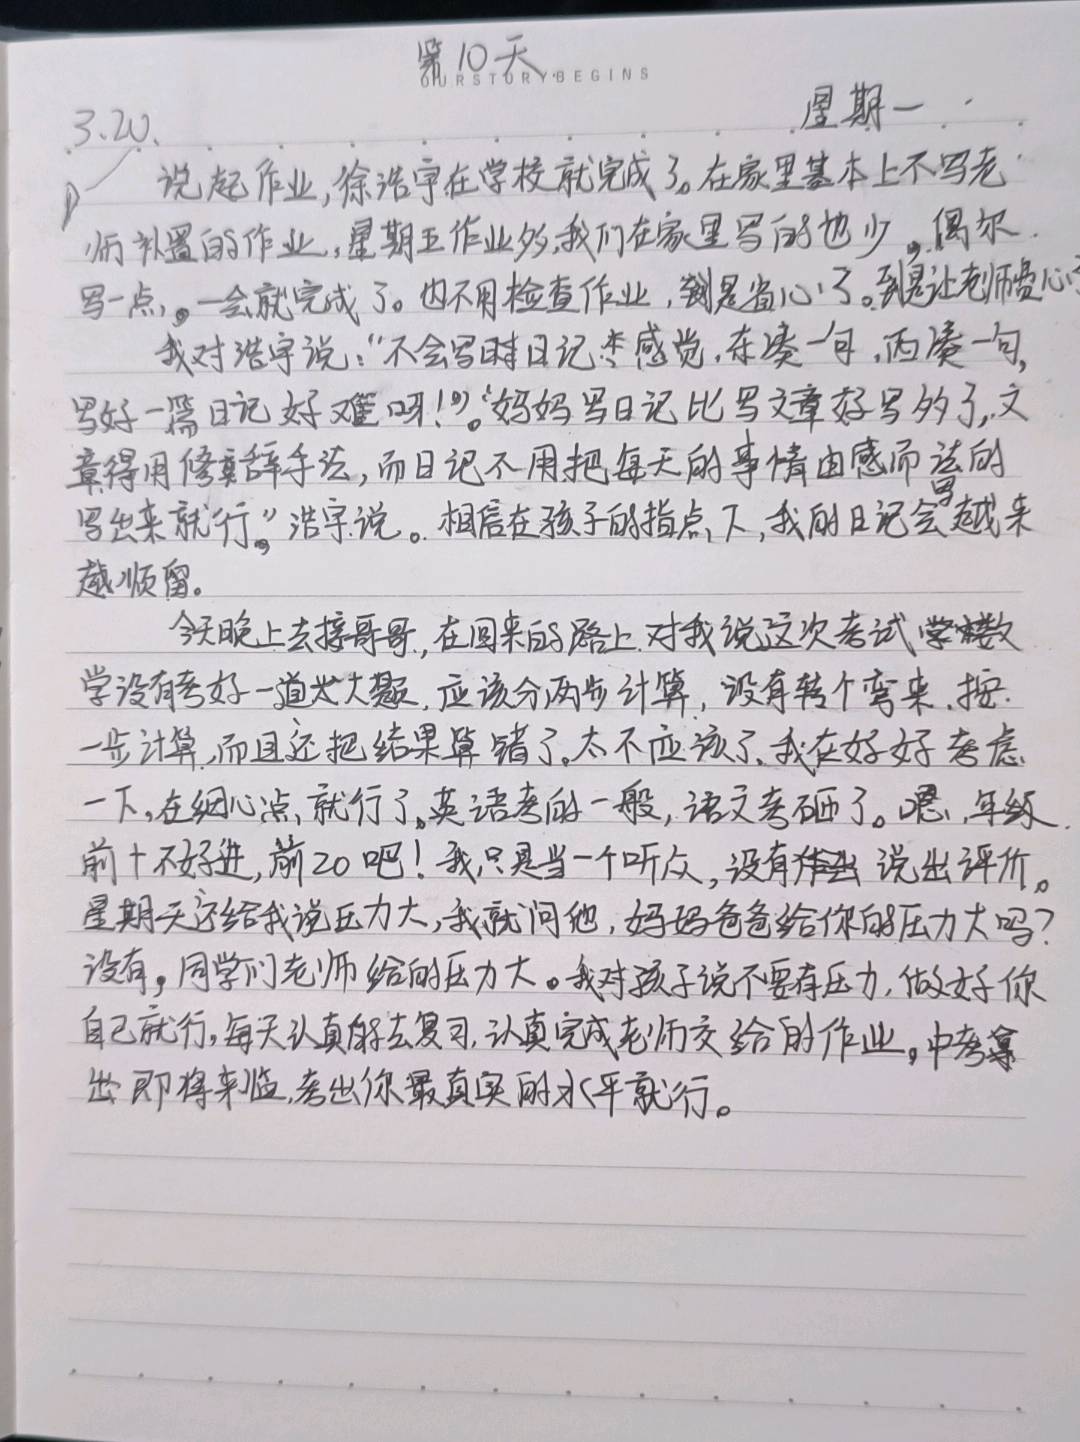 第10天
OURSTORYBEGINS
星期一
3.20.
说起作业,徐浩宇在学校就完成了。在家里基本上不写老
师补置的作业,星期五作业多,我们在家里写的也少,偶尔
写一点,。一会就完成了。也不用检查作业,到是省心了。到是让老师费心了
我对浩宇说:“不会写时日记 感觉,东凑一句,西凑一句,
写好一篇日记好难呀!”。“妈妈写日记比写文章好写多了,文
章得用修辞手法,而日记不用把每天的事情由感而 的
写出来就行。”浩宇说。相信在孩子的指点下,我的日记会写越来
越顺留。
今天晚上去接哥哥,在回来的路上对我说这次考试 数
学没有考好一道大题,应该分两步计算,没有转个弯来,按
一步计算,而且还把结果算错了。太不应该了,我在好好考虑
一下,在细心点就行了。英语考的一般,语文考砸了。嗯,年级
前十不好进,前20吧!我只是当一个听众,没有 说出评价。
星期天还给我说压力大,我就问他,妈妈爸爸给你的压力大吗?
没有,同学们老师给的压力大。我对孩子说不要有压力,做好你
自己就行,每天认真的去复习,认真完成老师交给的作业。中考
即将来临,考出你最真实的水平就行。